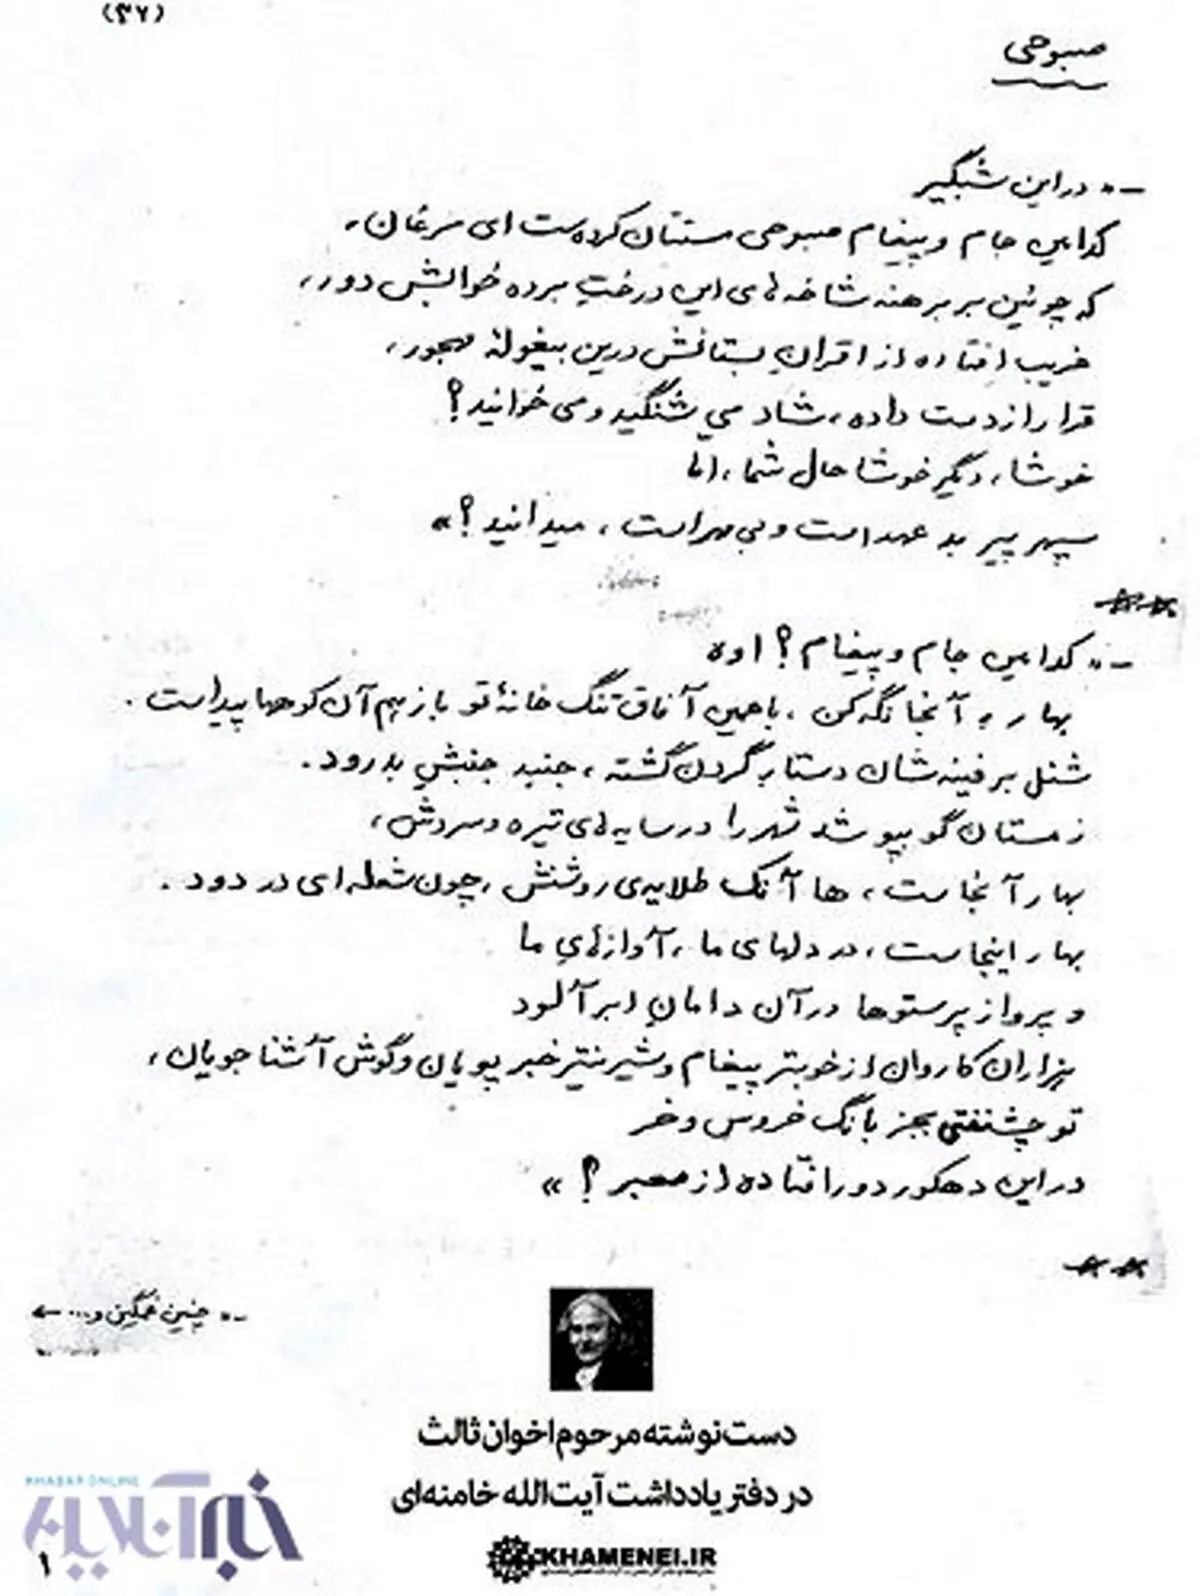 (۳۷)
صبوحی
ـ « در این شبگیر
کدامین جام و پیغام صبوحی مستتان کرده ست ای مرغان،
که چونین بر برهنه شاخه های این درختِ برده خوابش دور،
غریب افتاده از اقرانِ بستانش درین بیغولهٔ مهجور،
قرار از دست داده، شاد می شنگید و می خوانید؟
خوشا، دیگر خوشا حال شما، امّا
سپهر پیر بد عهد است و بی مهر است، میدانید؟ »
ـ « کدامین جام و پیغام؟ اوه
بهار به آنجا نگه کن، با همین آفاق تنگ خانهٔ تو باز هم آن کوهها پیداست.
شنل برفینه شان دستار گردن گشته، جنبد جنبش بدرود.
زمستان گو بپوشد شهر را در سایه های تیره و سردش،
بهار آنجاست، ها آنک طلایه ی روشنش، چون شعله ای در دود.
بهار اینجاست، در دلهای ما، آوازهای ما
و پرواز پرستوها در آن دامانِ ابرآلود
هزاران کاروان از خوبتر پیغام و شیرینتر خبر پویان و گوش آشنا جویان،
تو چشنفتی بجز بانگ خروس و خر
در این دهکور دور افتاده از معبر؟ »
ـ « چنین غمگین و... ←
دست‌نوشته مرحوم اخوان ثالث
در دفتر یادداشت آیت‌الله خامنه‌ای
KHAMENEI.IR
KHABAR ONLINE
خبرآنلاین
۱